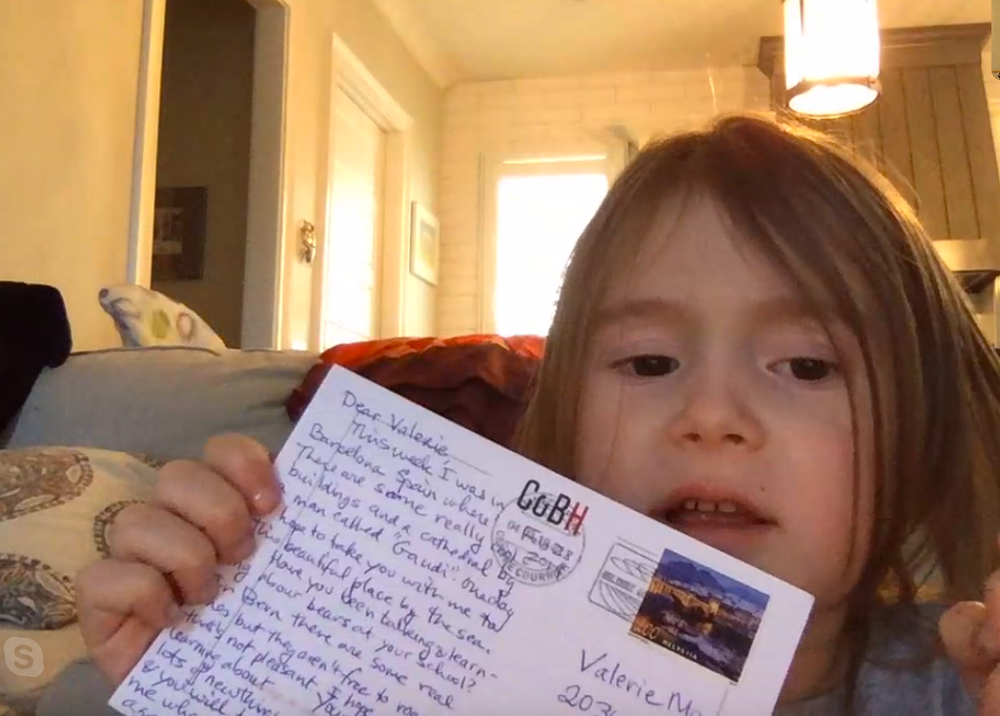 Dear Valerie,
This week I was in
Barcelona Spain where
There are some really cool
buildings and a cathedral by
a man called "Gaudi". One day
I hope to take you with me to
this beautiful place by the sea.
Have you been talking & learn-
ing about bears at your school?
In Bern there are some real
but they aren't free to
not pleasant. I hope
learning about
lots of new things
& you will
me
CGBH
COURRIER
1.00 HELVETIA
Valerie Mo
203
S